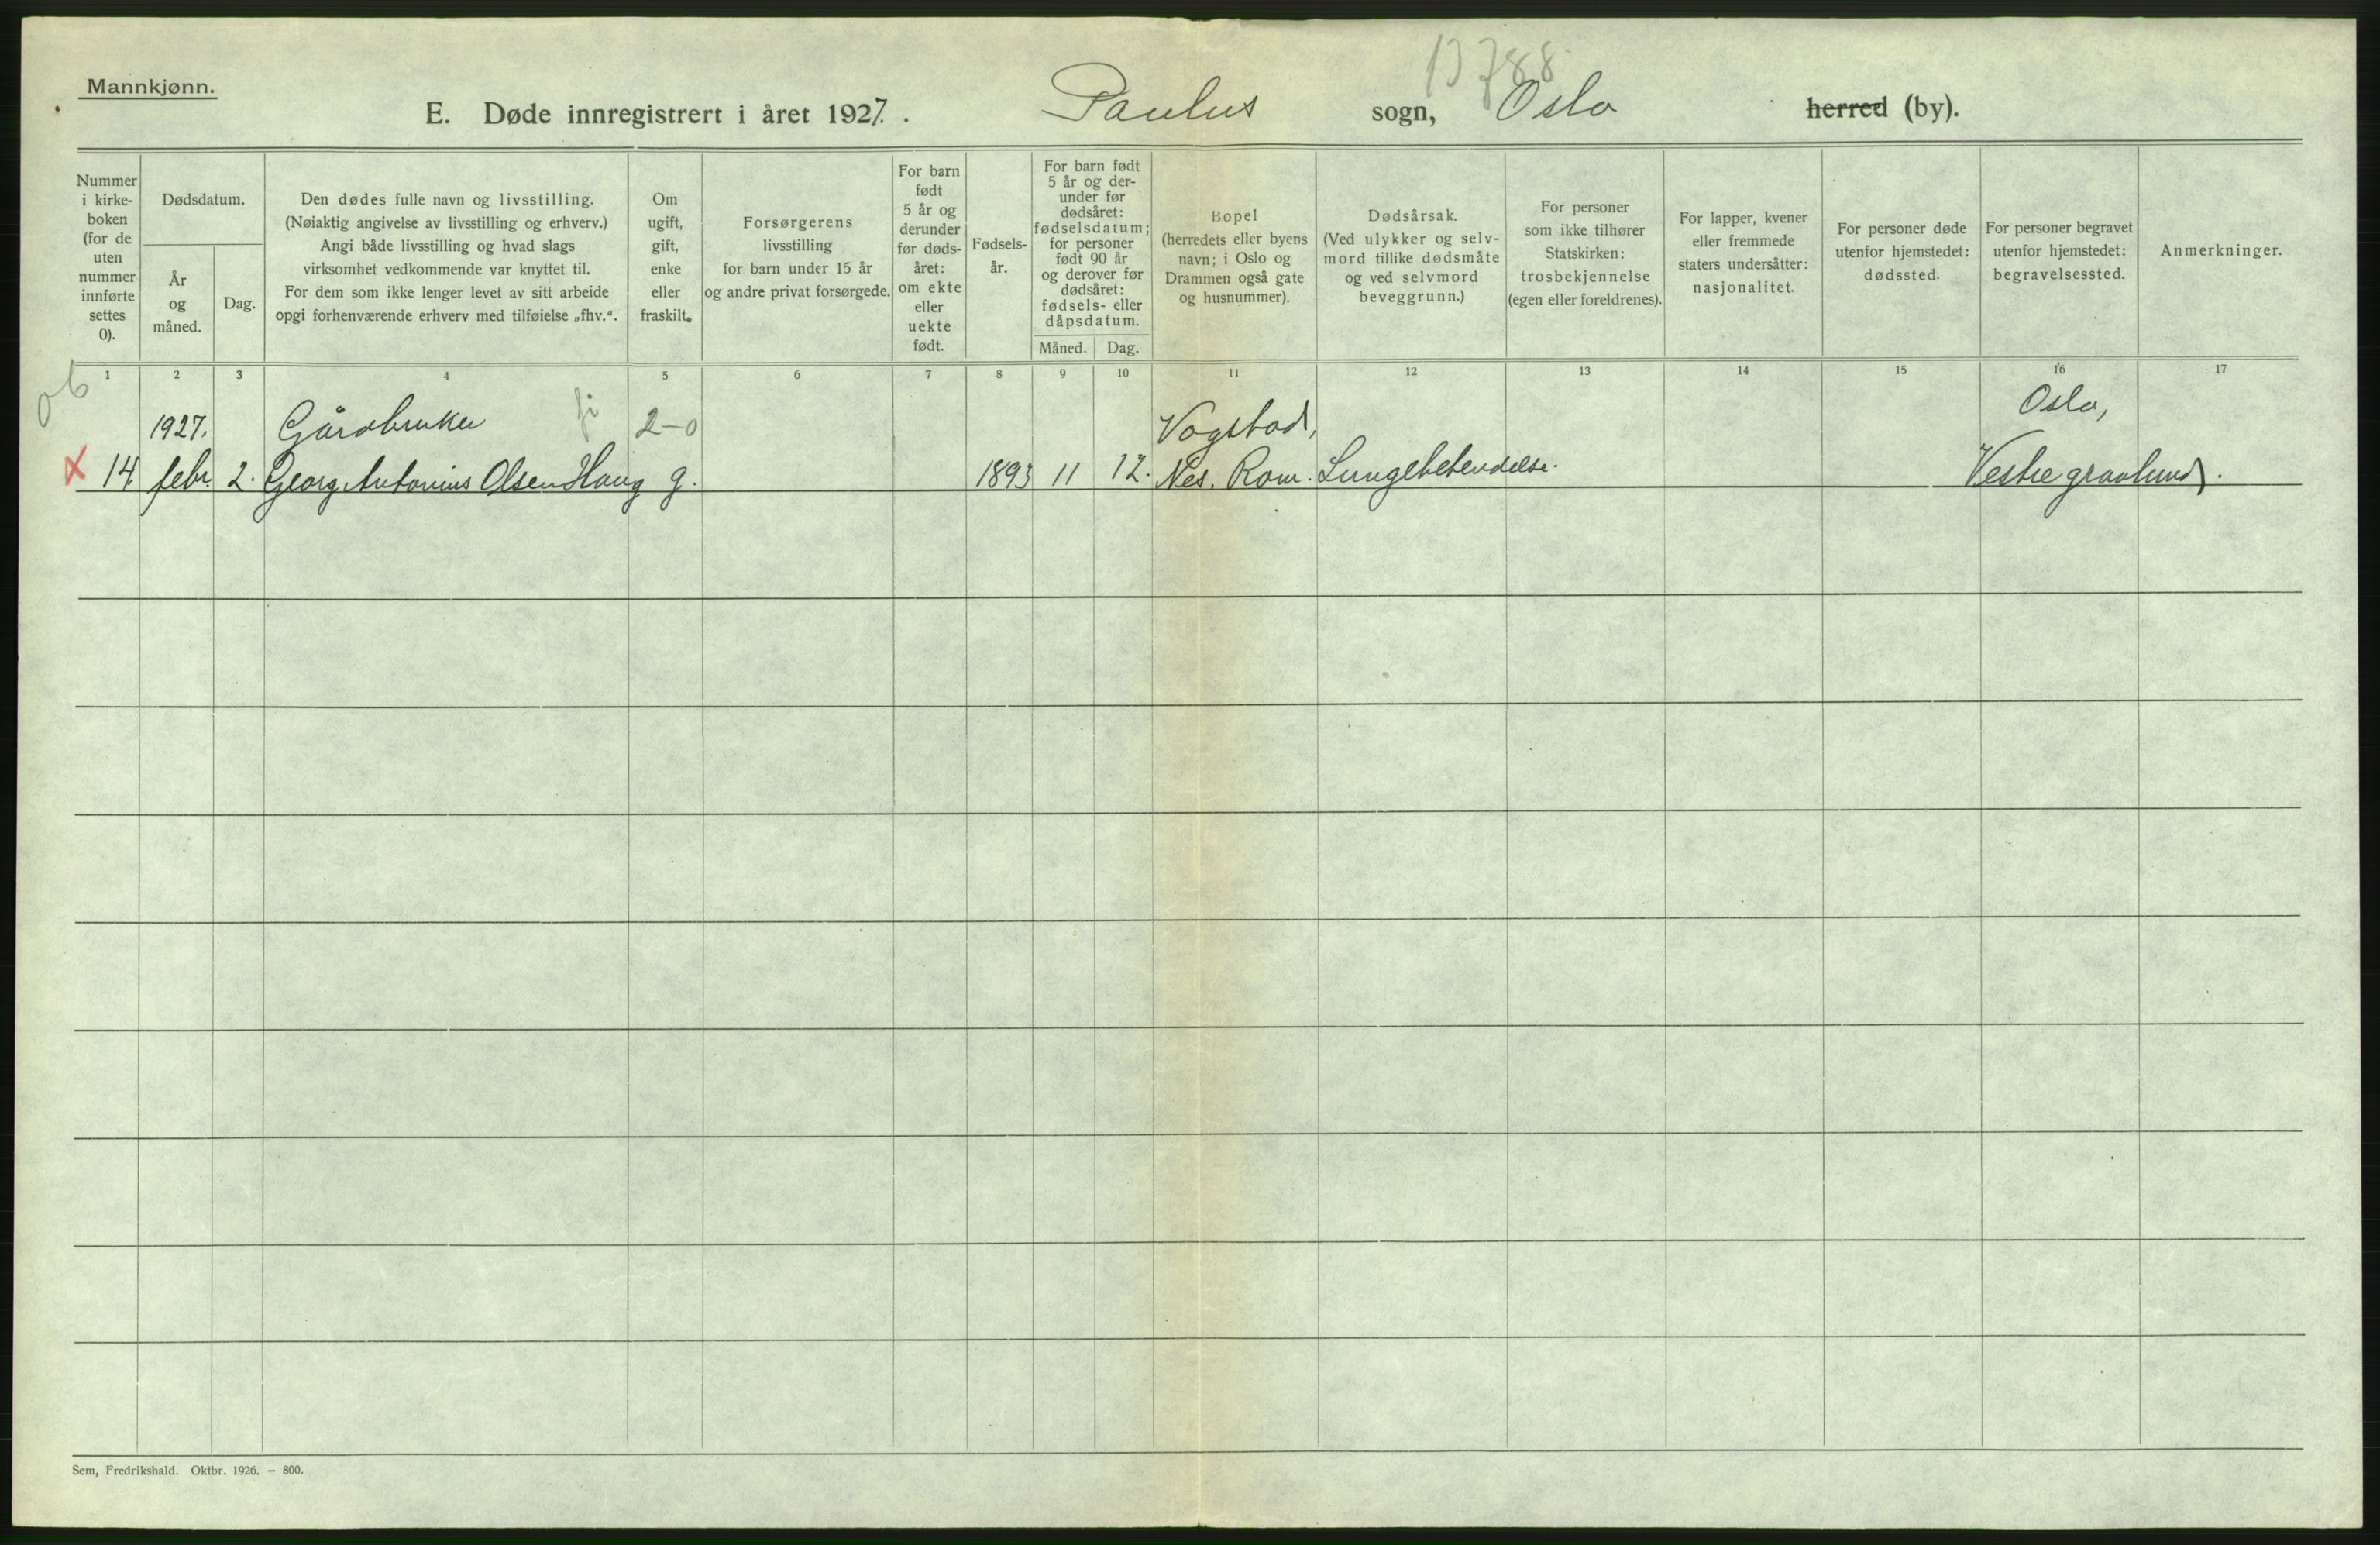 13788
Mannkjønn.
E. Døde innregistrert i året 1927. Paulus sogn, Oslo herred (by).
Nummer i kirke-boken (for de uten nummer innførte settes 0).
Dødsdatum.
År og måned.
Dag.
Den dødes fulle navn og livsstilling.
(Nøiaktig angivelse av livsstilling og erhverv.)
Angi både livsstilling og hvad slags
virksomhet vedkommende var knyttet til.
For dem som ikke lenger levet av sitt arbeide
opgi forhenværende erhverv med tilføielse „fhv.“.
Om ugift, gift, enke eller fraskilt.
Forsørgerens
livsstilling
for barn under 15 år
og andre privat forsørgede.
For barn født 5 år og derunder før døds-året: om ekte eller uekte født.
Fødsels-år.
For barn født
5 år og der-
under før
dødsåret:
fødselsdatum;
for personer
født 90 år
og derover før
dødsåret:
fødsels- eller
dåpsdatum.
Måned.
Dag.
Bopel
(herredets eller byens
navn; i Oslo og
Drammen også gate
og husnummer).
Dødsårsak.
(Ved ulykker og selv-
mord tillike dødsmåte
og ved selvmord
beveggrunn.)
For personer
som ikke tilhører
Statskirken:
trosbekjennelse
(egen eller foreldrenes).
For lapper, kvener
eller fremmede
staters undersåtter:
nasjonalitet.
For personer døde
utenfor hjemstedet:
dødssted.
For personer begravet
utenfor hjemstedet:
begravelsessted.
Anmerkninger.
1 2 3 4 5 6 7 8 9 10 11 12 13 14 15 16 17
ob
1927. Gårdbruker fi 2-0 Vogstad, Oslo,
x 14 febr. 2. Georg Antonius Olsen Haug g. 1893 11 12. Nes. Rom. Lungebetendelse. Vestre gravlund.
Sem, Fredrikshald. Oktbr. 1926. — 800.